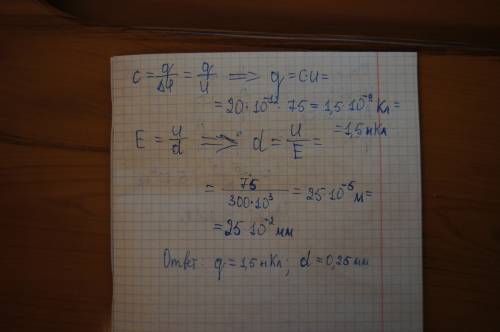 C = q/Δφ = q/U ⟹ q = CU =
= 20·10⁻¹²·75 = 1,5·10⁻⁹ Кл =
= 1,5 нКл
E = U/d ⟹ d = U/E =
= 75/300·10³ = 25·10⁻⁵ м =
= 25·10⁻² мм
Ответ: q = 1,5 нКл; d = 0,25 мм